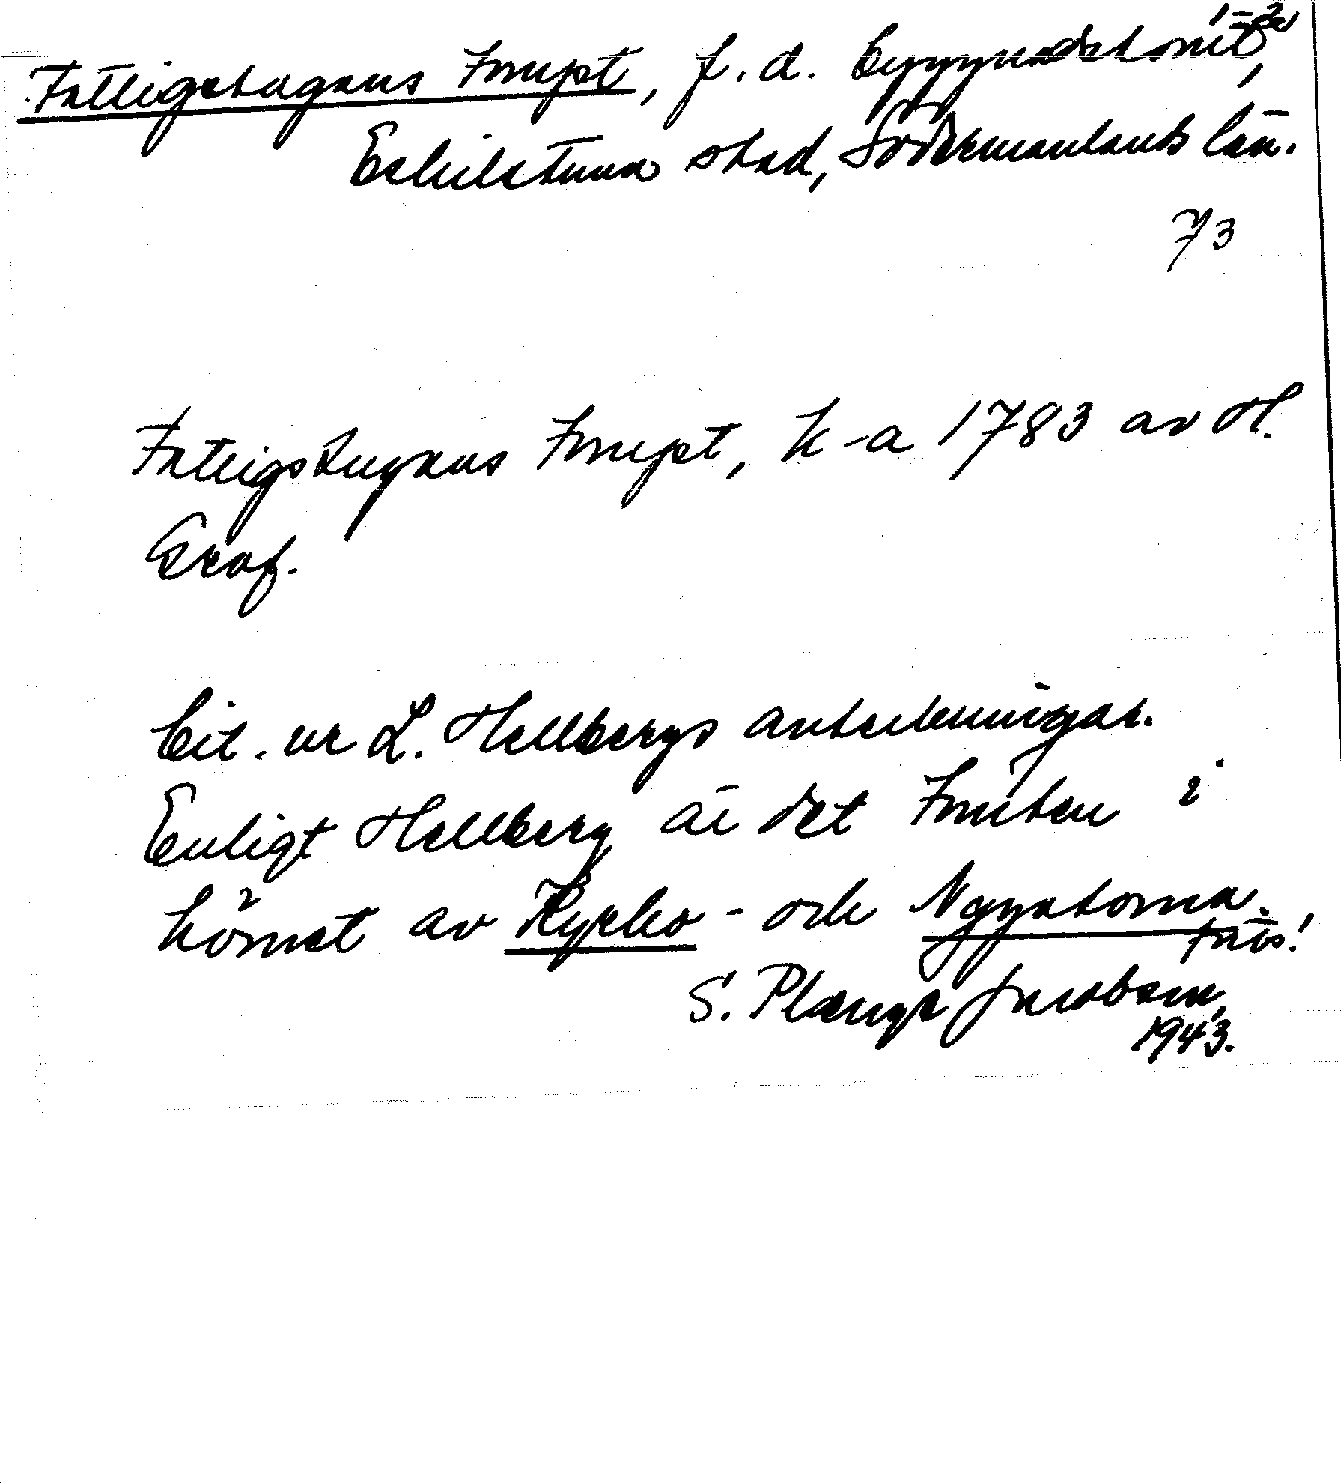 Fattigstugans Tompt, f.d. byggnadstomt,
Eskilstuna stad, Södermanlands län.
73
Fattigstugans Tompt, k-a 1783 av H.
Graf.
Cit. ur L. Hellbergs anteckningar.
Enligt Hellberg är det Tomten i
hörnet av Kyrko- och Nygatorna.
S. Plænge Jacobson,
1943.